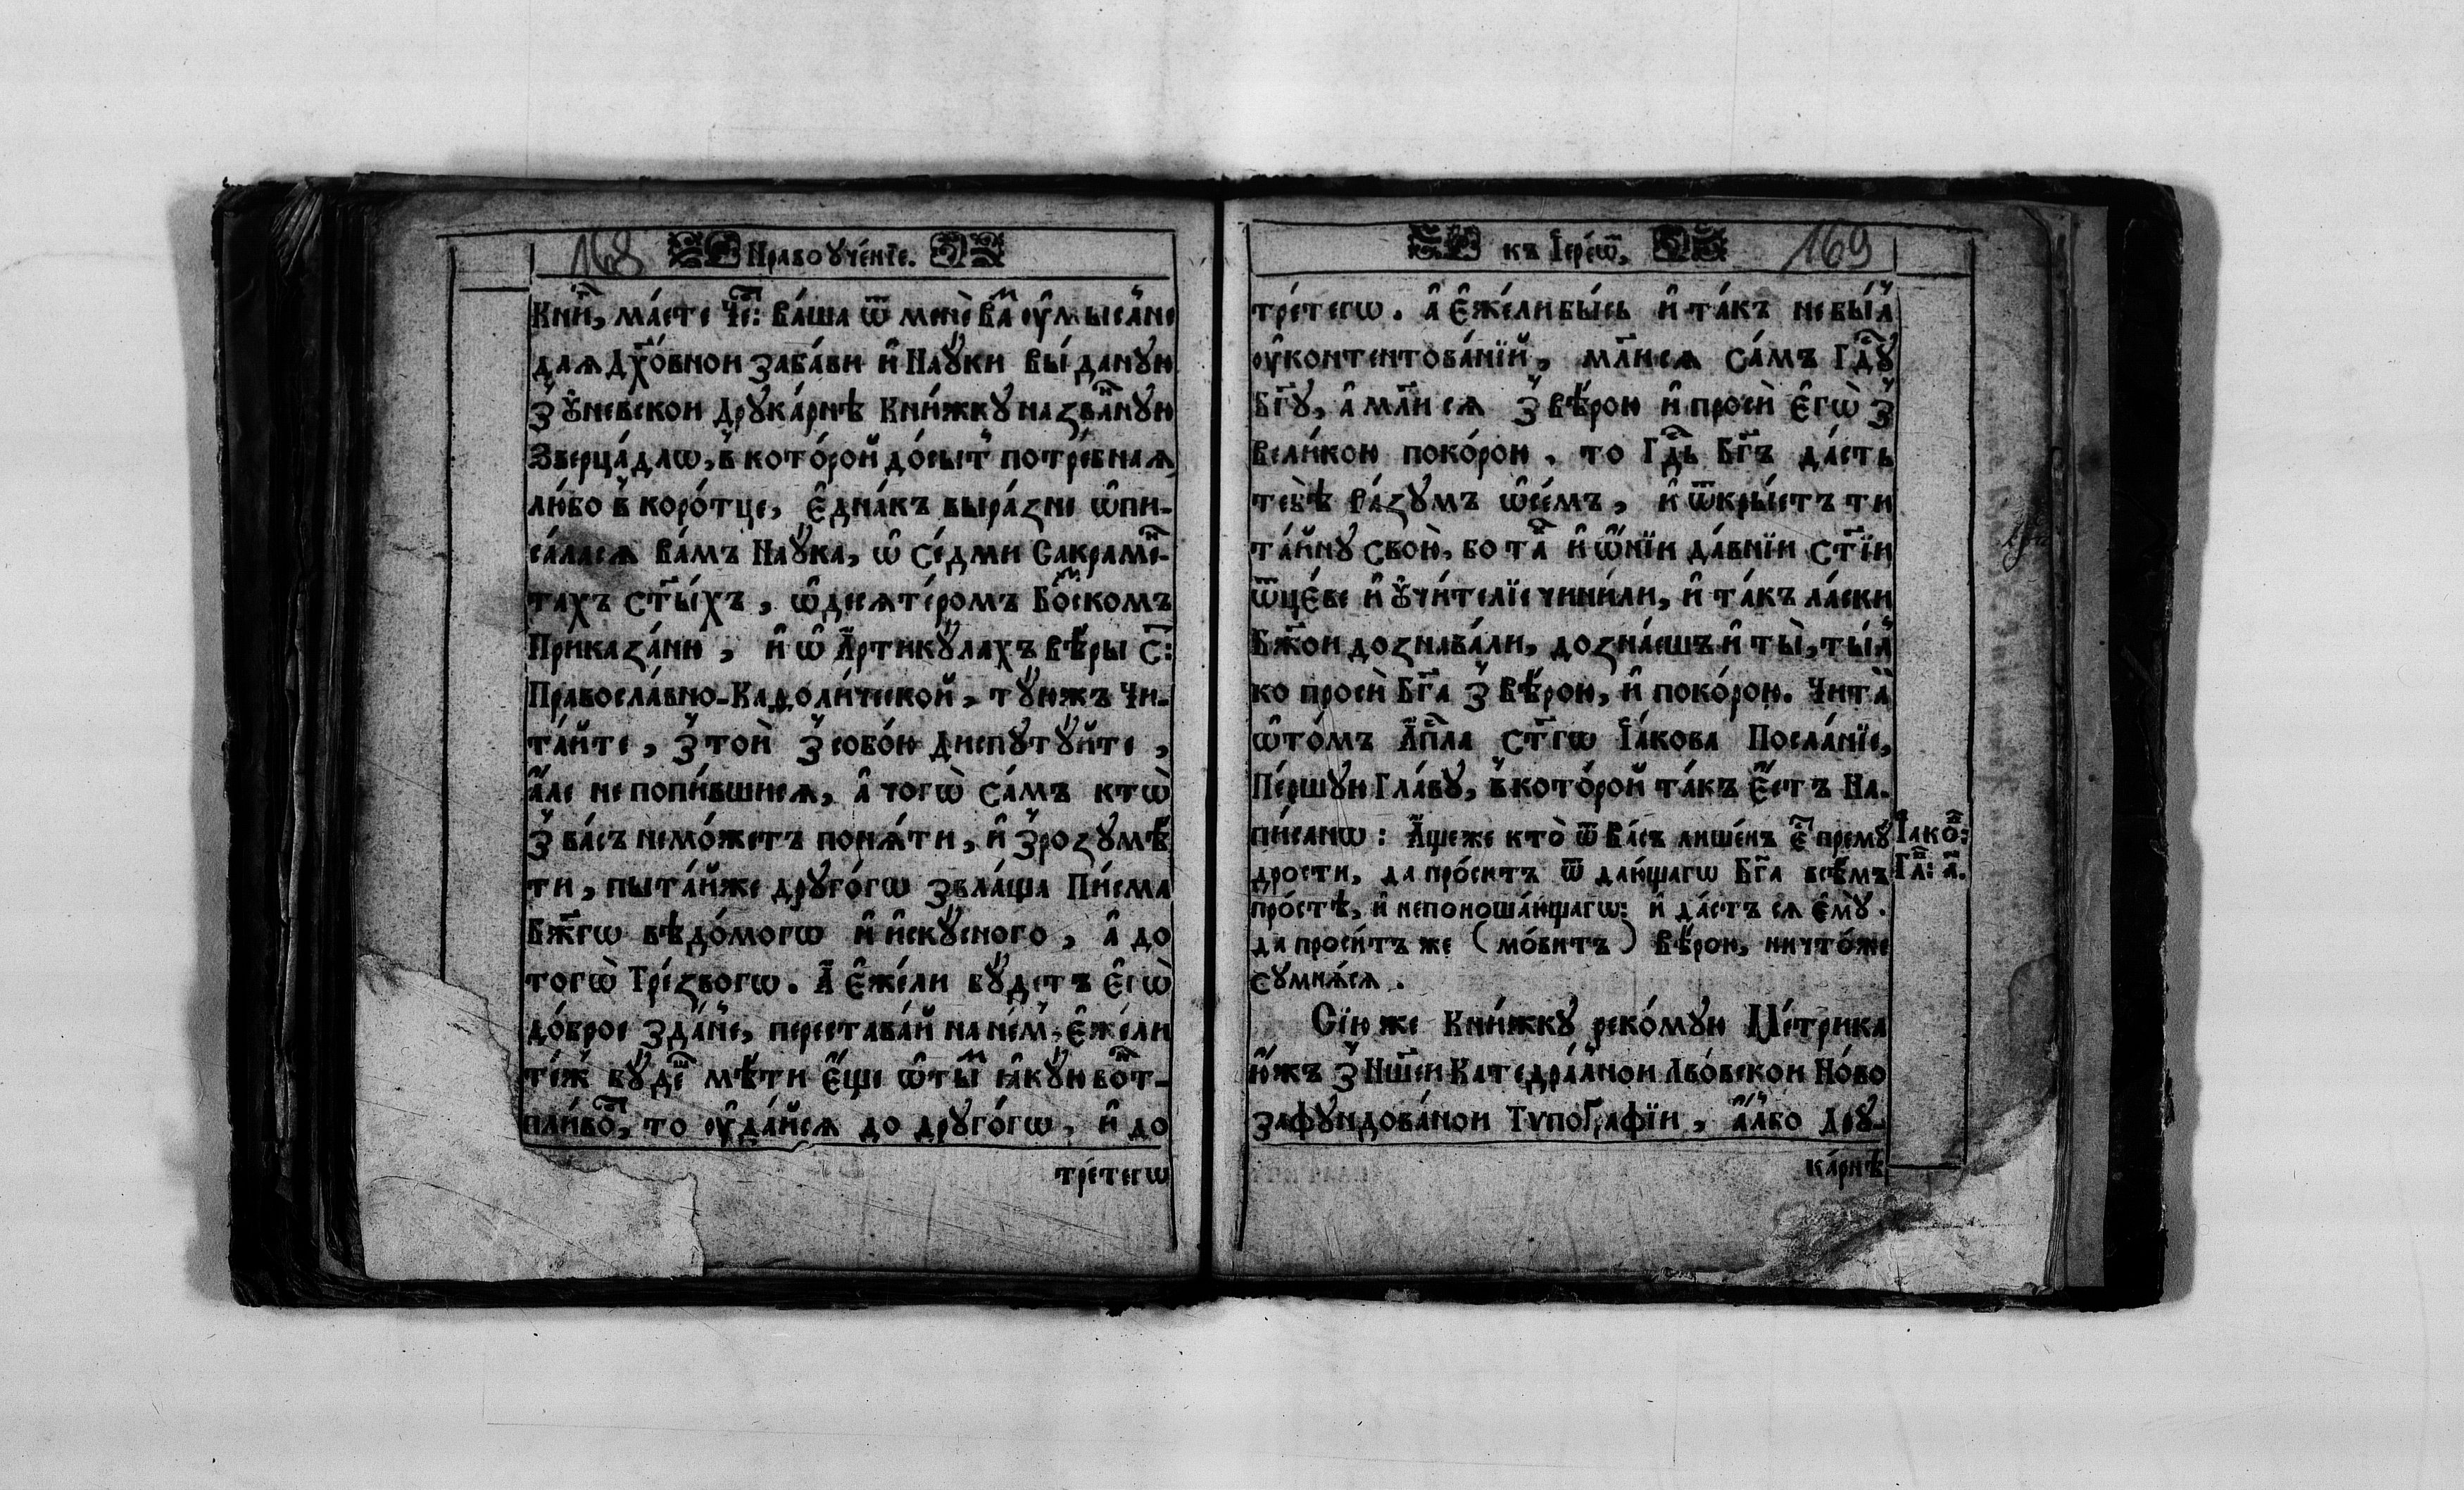 168 Нравоꙋче́нїе.
Кни́г, ма́єте Че: ва́ша ѿ менѐ ва оу҆мысл́не
для Дх҃о́вной заба́ви и҆ Наꙋ́ки вы́данꙋю
З̾ Ꙋ҆невскои Дрꙋка́рнѣ Кни́жкꙋ назва́нꙋю
Зверца́дло, в̾ кото́рой до́сыт̾ потре́бная
либо в̾ коро́тце, Є҆дна́къ выра́зне ѡ҆пи-
са́лася ва́мъ Наꙋ́ка, ѡ҆ се́дми Сакраме-
тахъ ст҃ы́хъ, ѡ҆десяте́ромъ Бо́скомъ
Приказа́ню, и҆ ѡ҆ А҆ртикꙋлахъ вѣ́ры С:
Правосла́вно-Каѳоли́ческой, тꙋ́южъ Чи-
та́йте, з̾ тоѝ з̾ собо́ю диспꙋтꙋ́йте,
а҆́ле непопи́вшися, а҆ тогѡ̀ са́мъ ктѡ̀
з̾ ва́съ немо́жетъ поня́ти, и҆ з̾розꙋмѣ́
ти, пыта́йже дрꙋго́гѡ звла́ща Пи́сма
Бж҃гѡ вѣдо́могѡ и҆ и҆скꙋ́сного, а҆ до
тогѡ̀ Тре́звогѡ. А҆ Є҆же́ли бꙋ́детъ Є҆гѡ̀
до́брое зда́н̾е, перестава́й на не́м̾, Є҆же́ли
те́ж̾ бꙋ́де мѣ́ти Є҆́ще ѡ҆ты́ ꙗ҆кꙋ́ю вот-
пли́во, то оу҆да́йся до дрꙋго́гѡ, и҆ до
тре́тегѡ
къ І҆ере́ѡ, 169
тре́тегѡ. а҆ Є҆же́либысь и҆ та́къ не бы́л̾
оу҆контентова́нїй, мл҃ися са́мъ Гд҃ꙋ
Бг҃ꙋ, а҆ мл҃ися з̾ вѣ́рою и҆ просѝ Є҆гѡ̀ з̾
вели́кою поко́рою, то Гд҃ь Бг҃ъ да́сть
тебѣ̀ ра́зꙋмъ ѡ҆се́мъ, и҆ ѿкры́етъ ти
та́йнꙋ своѝ, бо та и҆ ѡ҆́нїи да́внїи ст҃їи
ѿце́ве и҆ Ꙋ҆чи́телїе чини́ли, и҆ та́къ ла́ски
Бж҃ои дознава́ли, дозна́єшъ и҆ ты̀, ты́л̾
ко просѝ Бг҃а з̾ вѣ́рою, и҆ поко́рою. Чита̀
ѡ҆то́мъ А҆п҃ла ст҃гѡ І҆а́кова Посла́нїе,
Пе́ршꙋю Гла́вꙋ, в̾кото́рой та́къ Є҆́стъ На-
пи́санѡ: А҆́щеже кто̀ ѿ ва́съ лише́нъ є҆ премꙋ́
дрости, да про́ситъ ѿ даю́щагѡ Бг҃а всѣ́мъ
про́стѣ, и҆ непоноша́ющагѡ: и҆ да́стъ ся Є҆мꙋ̀.
да проси́тъ же (мо́витъ) вѣ́рою, ничто́же
сꙋмня́ся.
І҆ако: Гл: а҃.
Сїю же Кни́жкꙋ реко́мꙋю Ме́трика
ю҆́жъ з̾ Нш҃ей Катедра́л̾нои Лво́вскои Но́во
зафꙋндова́нои Тѵпоґра́фїи, а҆́лбо Дрꙋ-
ка́рнѣ